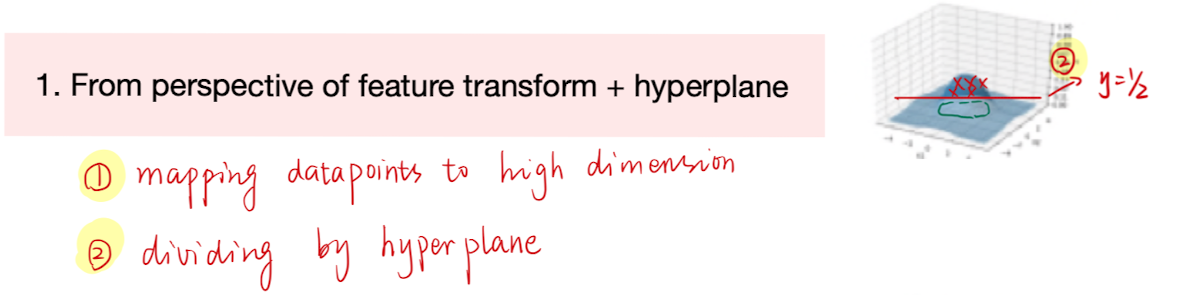 1. From perspective of feature transform + hyperplane
② y=1/2
xxx
① mapping datapoints to high dimension
② dividing by hyperplane